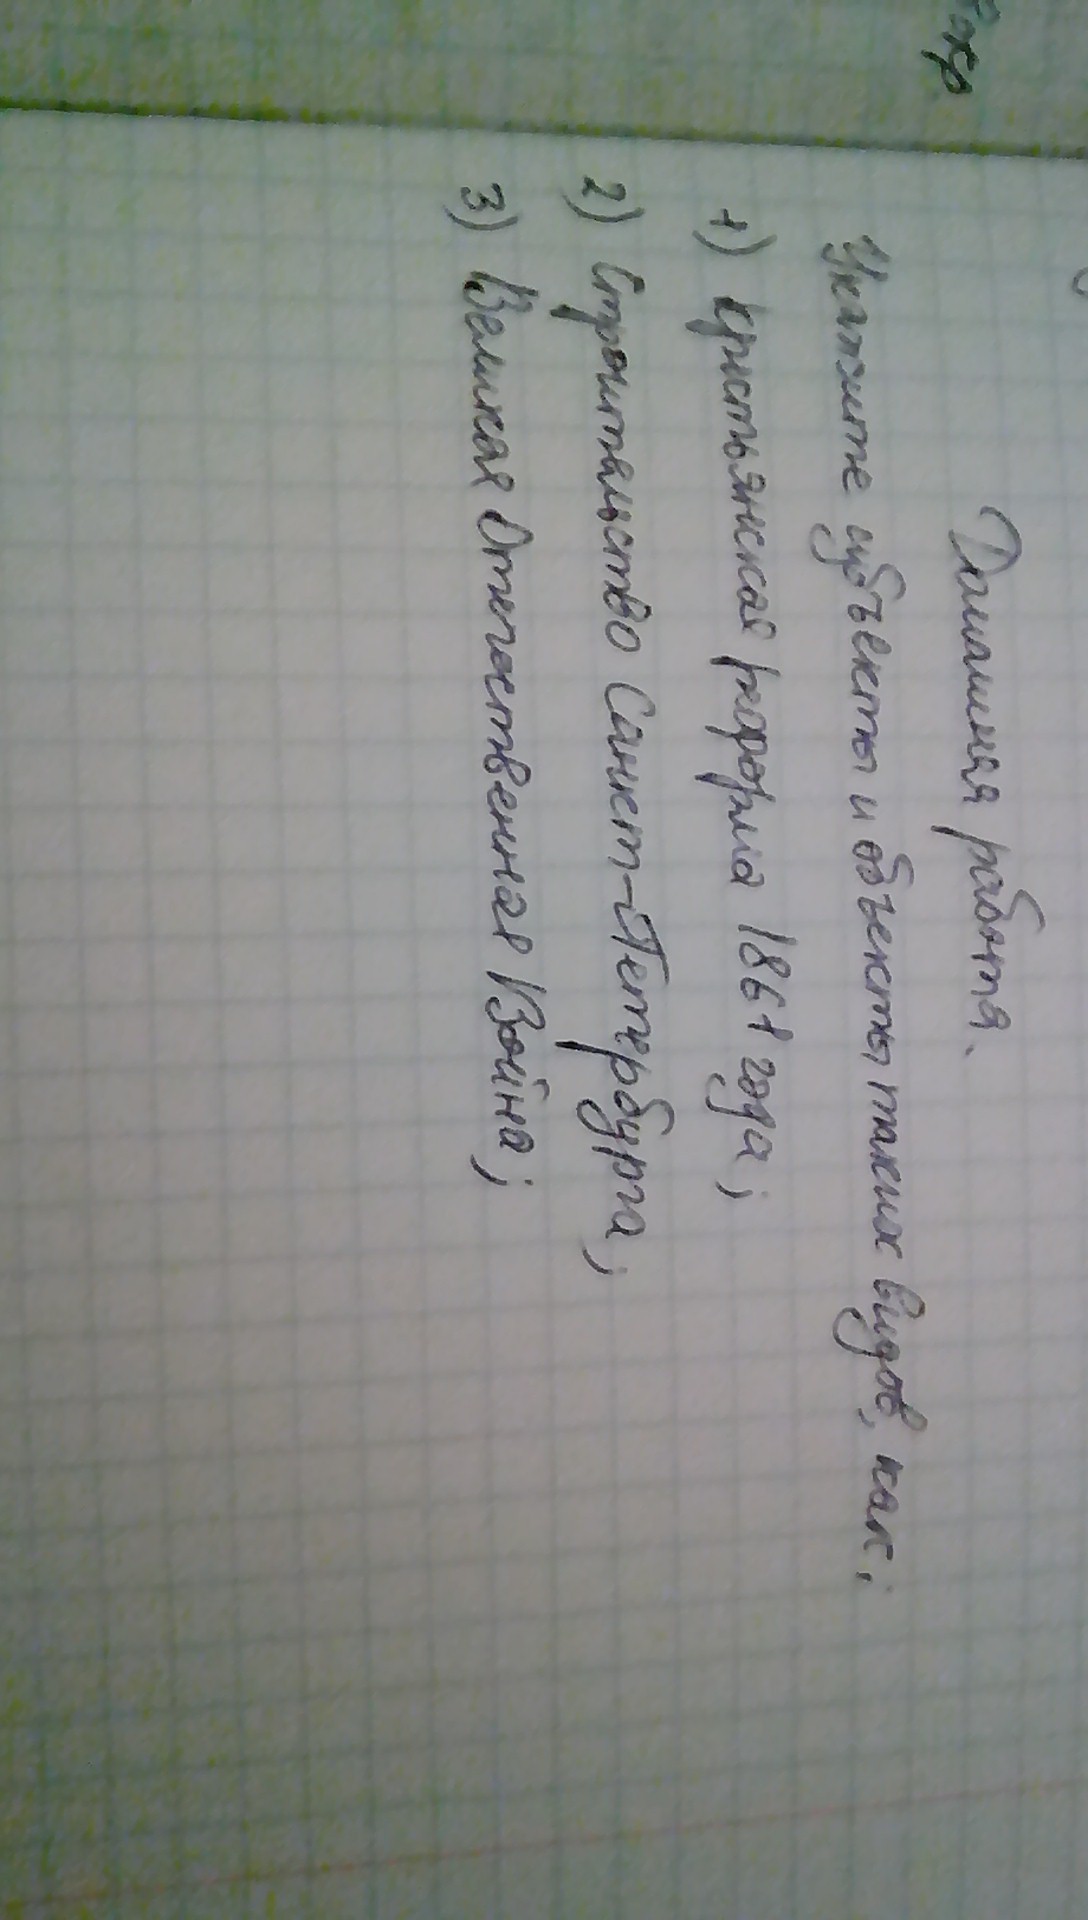 Домашняя работа.
Укажите субъекты и объекты таких видов, как:
1) крестьянская реформа 1861 года;
2) Строительство Санкт-Петербурга;
3) Великая Отечественная Война;